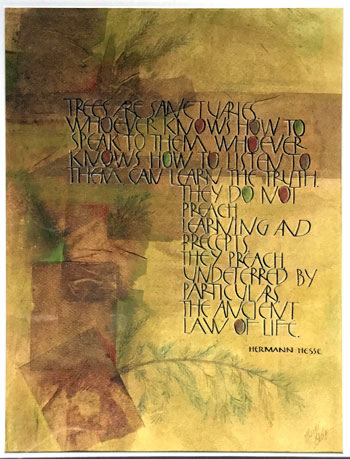 TREES ARE SANCTUARIES
WHOEVER KNOWS HOW TO
SPEAK TO THEM, WHOEVER
KNOWS HOW TO LISTEN TO
THEM CAN LEARN THE TRUTH.
THEY DO NOT
PREACH
LEARNING AND
PRECEPTS
THEY PREACH
UNDETERRED BY
PARTICULARS
THE ANCIENT
LAW OF LIFE.
HERMANN HESSE